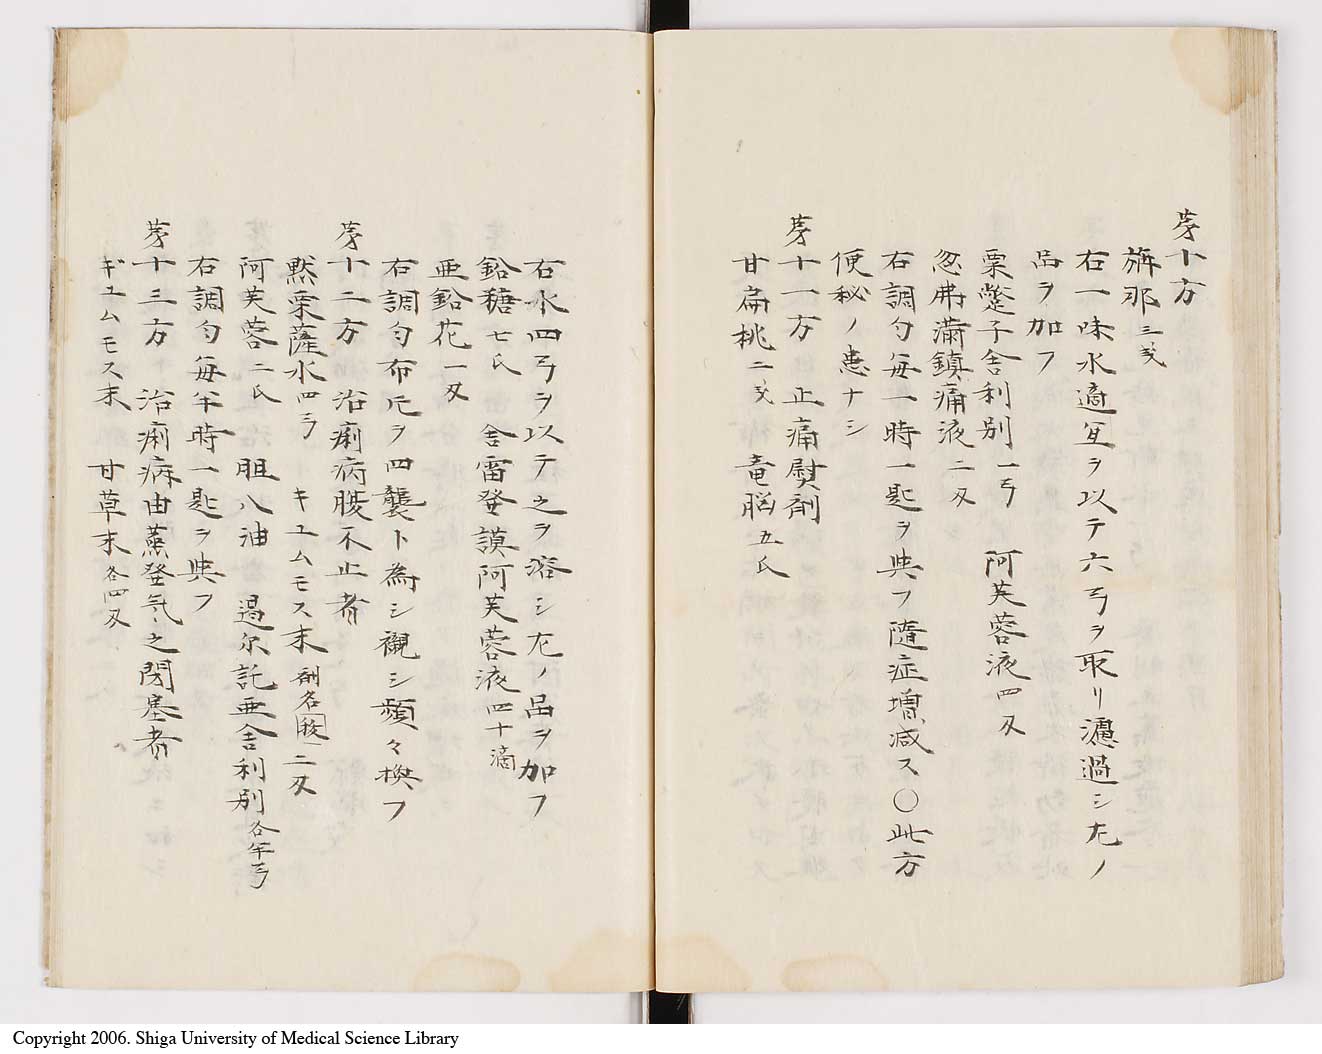 㐧十方
旃那 三戔
右一味水適宜ヲ以テ六弓ヲ取リ濾過シ尤ノ
品ヲ加フ
罌粟子舎利別 一弓 阿芙蓉液 四刄
忽弗満鎮痛液 二刄
右調匀毎一時一匙ヲ與フ随症増减ス〇此方
便秘ノ患ナシ
㐧十一方 止痛熨剤
甘扁桃 二戔 竜脳 五氏
右水四弓ヲ以テ之ヲ溶シ尤ノ品ヲ加フ
鉛糖 七氏 舎雷登謨阿芙蓉液 四十滴
亜鉛花 一刄
右調匀布片ヲ四襲ト為シ襯シ頻々換フ
㐧十二方 治痢病腹不止者
黙栗薩水 四弓 キユムモス末 剤名 二刄
阿芙蓉 二氏 胆八油 遏尓託亜舎利別 各半弓
右調匀毎半時一匙ヲ與フ
㐧十三方 治痢病由蒸發気之閉塞者
ギユムモス末 甘草末 各四刄
Copyright 2006. Shiga University of Medical Science Library